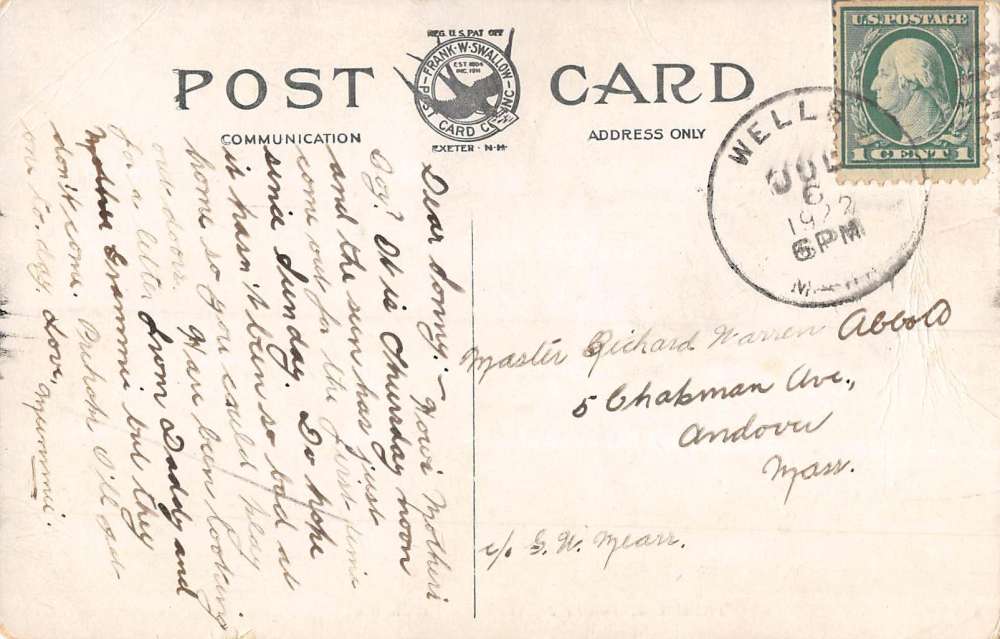 POST CARD
REG. U.S. PAT. OFF.
FRANK·W·SWALLOW
EST. 1804
INC. 1911
POST CARD CO. INC.
EXETER·N·H·
COMMUNICATION
ADDRESS ONLY
U.S. POSTAGE
1 CENT 1
WELLS
JUL
6
1922
6 PM
Dear Sonny:- How's Mother's
Boy? It is Thursday noon
and the sun has just
come out for the first time
since Sunday. Do hope
it hasn't been so bad at
home so you could play
out doors. Have been looking
for a letter from Daddy and
Mother Grammie but they
don't come. Perhaps I'll get
one to-day. Love, Mummie.
Master Richard Warren Abbott
5 Chapman Ave.,
Andover
Mass.
c/o G. W. Mears.